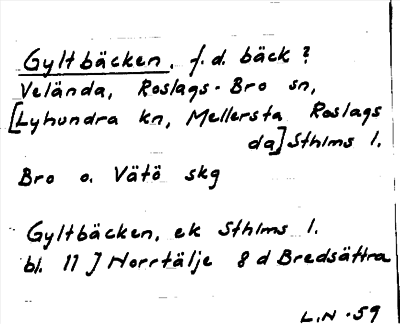 Gyltbäcken, f.d. bäck?
Velända, Roslags-Bro sn,
[Lyhundra kn, Mellersta Roslags
da] Sthlms l.
Bro o. Vätö skg
Gyltbäcken, ek Sthlms l.
bl. 11 J Norrtälje 8 d Bredsättra
L.N -59